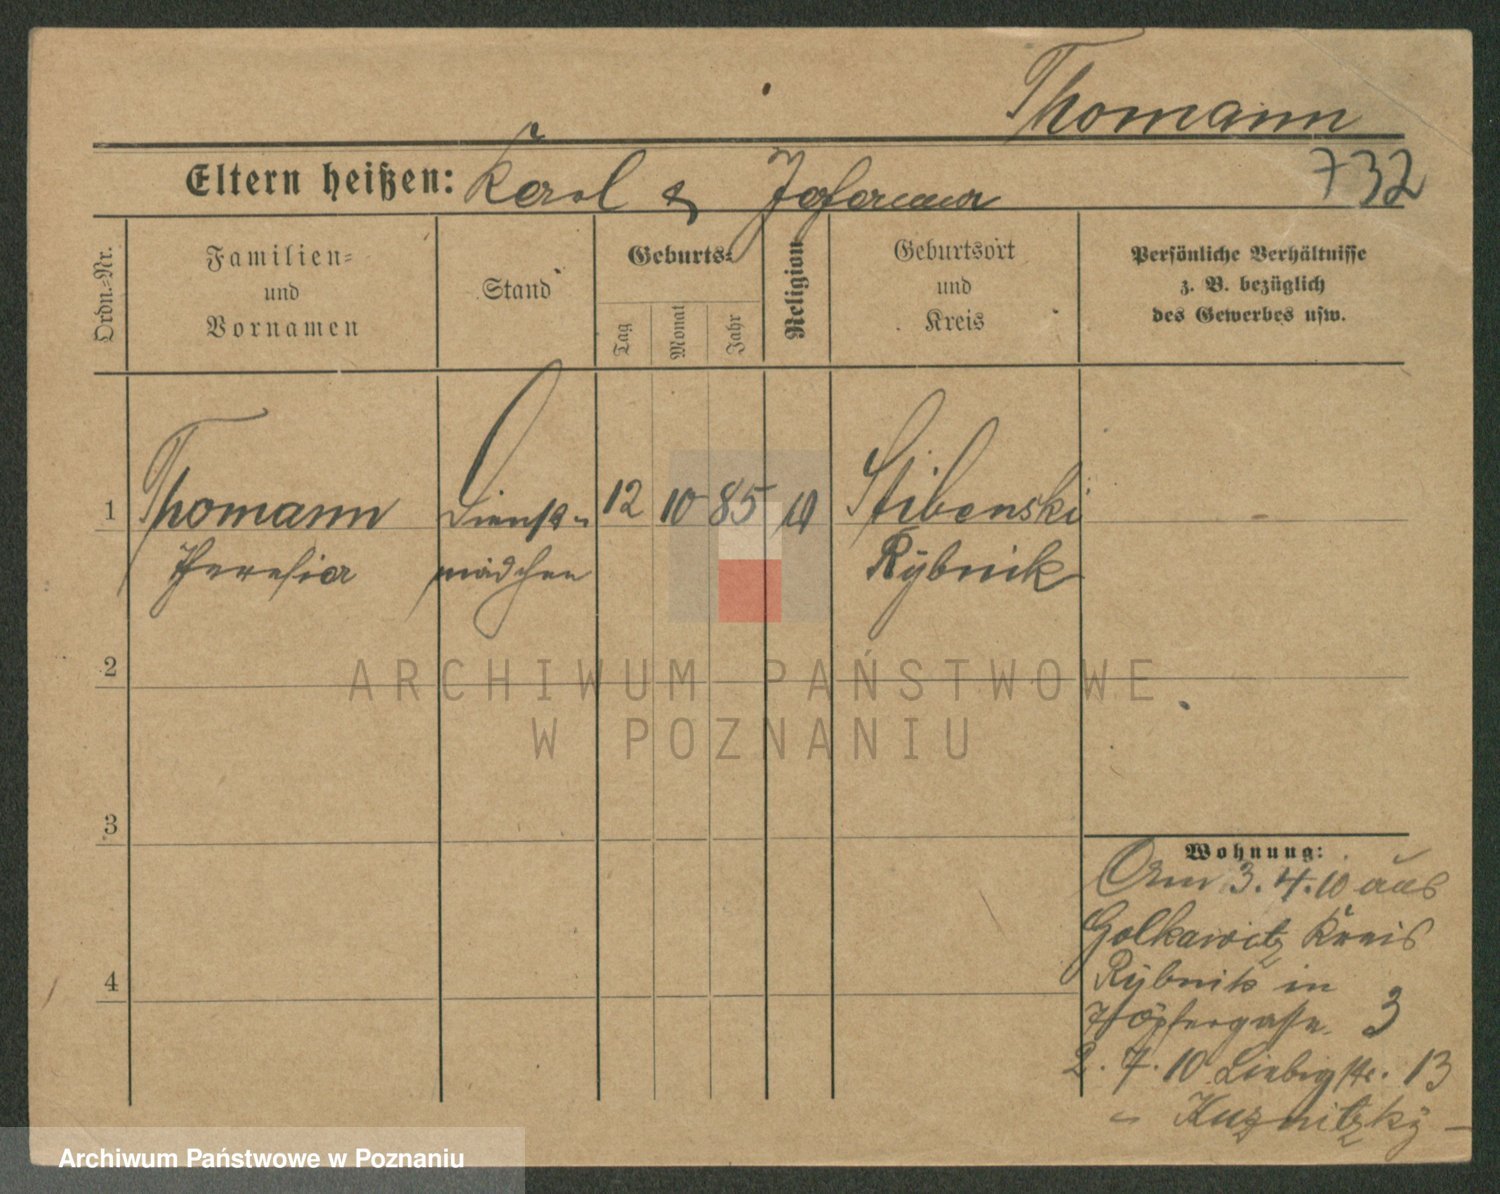 Thomann
Eltern heißen: Karl & Johanna
732
Ordn.=Nr.
Familien=
und
Vornamen
Stand
Geburts=
Tag
Monat
Jahr
Religion
Geburtsort
und
Kreis
Persönliche Verhältnisse
z. B. bezüglich
des Gewerbes usw.
1 Thomann Dienst= 12 10 85 Stibenski
Theresia mädchen Rybnik
2
3
4
Wohnung:
Am 3.4.10 aus
Golkawitz Kreis
Rybnik in
Töpfergasse 3
2.7.10 Liebigstr. 13
" Kuznitzky
ARCHIWUM PAŃSTWOWE
W POZNANIU
Archiwum Państwowe w Poznaniu